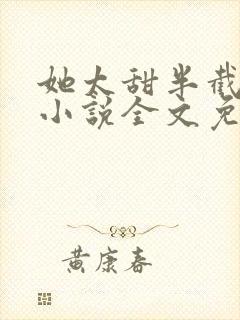 她太甜半截
小说全文免
黄康春